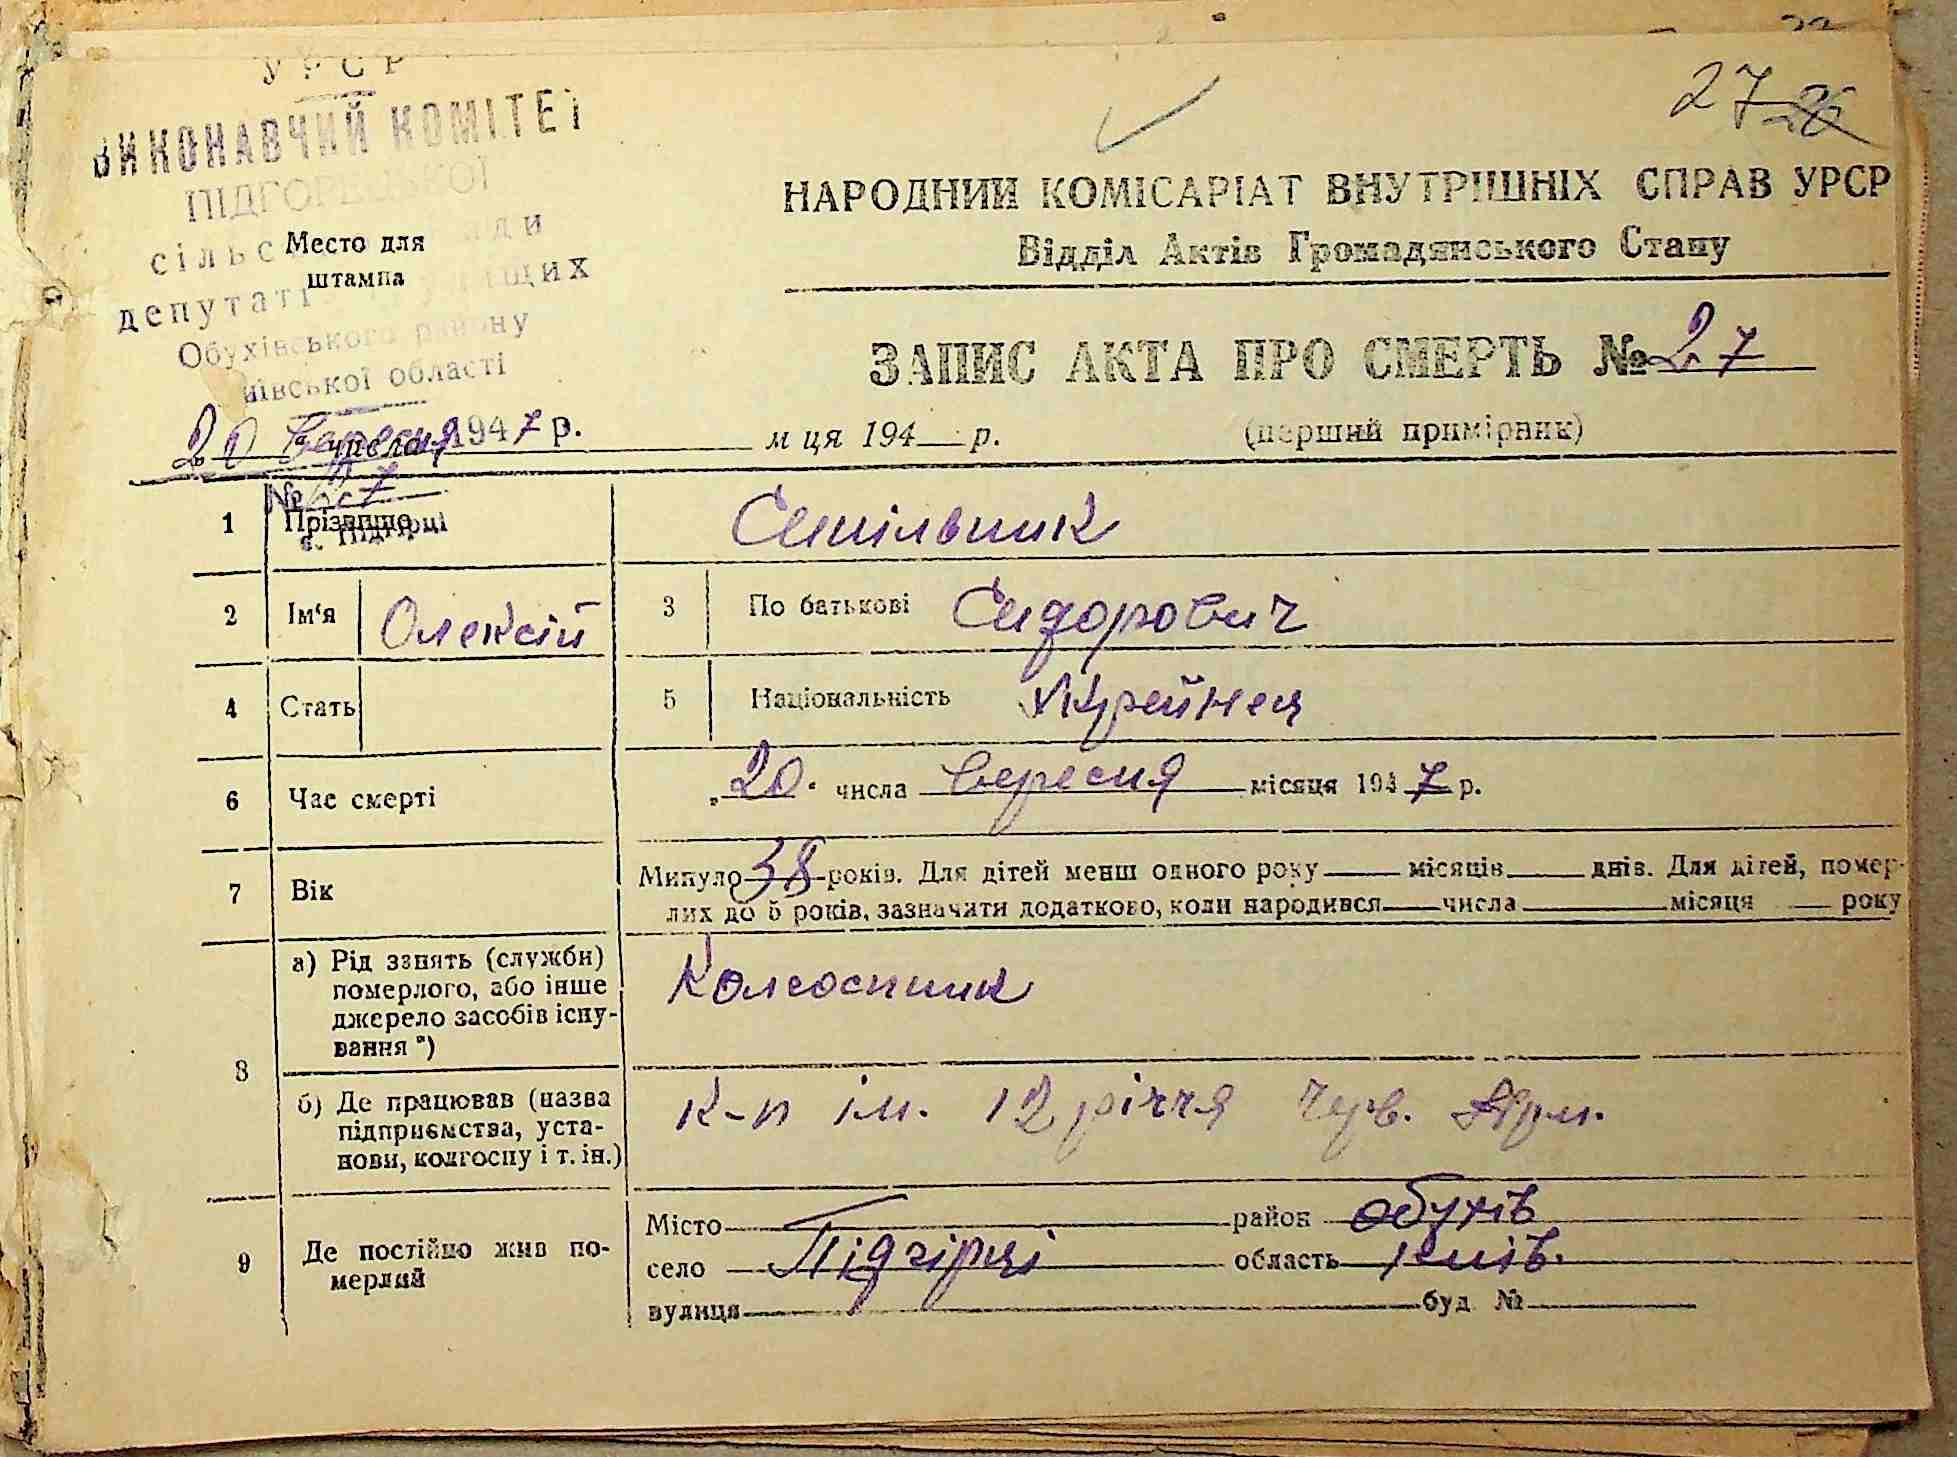 27 26
УРСР
ВИКОНАВЧИЙ КОМІТЕТ
ПІДГОРЕЦЬКОЇ
сільс ди
депутаті щих
Обухівського району
иївської області
20 вересня 1947 р.
№ 27
с. Підгірці
Место для
штампа
НАРОДНИЙ КОМІСАРІАТ ВНУТРІШНІХ СПРАВ УРСР
Відділ Актів Громадянського Стану
ЗАПИС АКТА ПРО СМЕРТЬ № 27
числа м ця 194 р. (перший примірник)
1 Прізвище
2 Ім'я Олексій 3 По батькові Сидорович
4 Стать 5 Національність Украйнец
6 Час смерті „20. числа вересня місяця 1947 р.
7 Вік Минуло 38 років. Для дітей менш одного року місяців днів. Для дітей, помер-
лих до 5 років, зазначити додатково, коли народився числа місяця року
8 а) Рід занять (служби)
померлого, або інше
джерело засобів існу-
вання *)
Колгоспник
б) Де працював (назва
підприємства, уста-
нови, колгоспу і т. ін.)
к-п ім. 12 річчя Черв. Арм.
9 Де постійно жив по-
мерлий
Місто район Обухів
село Підгірці область Київ.
вулиця буд №